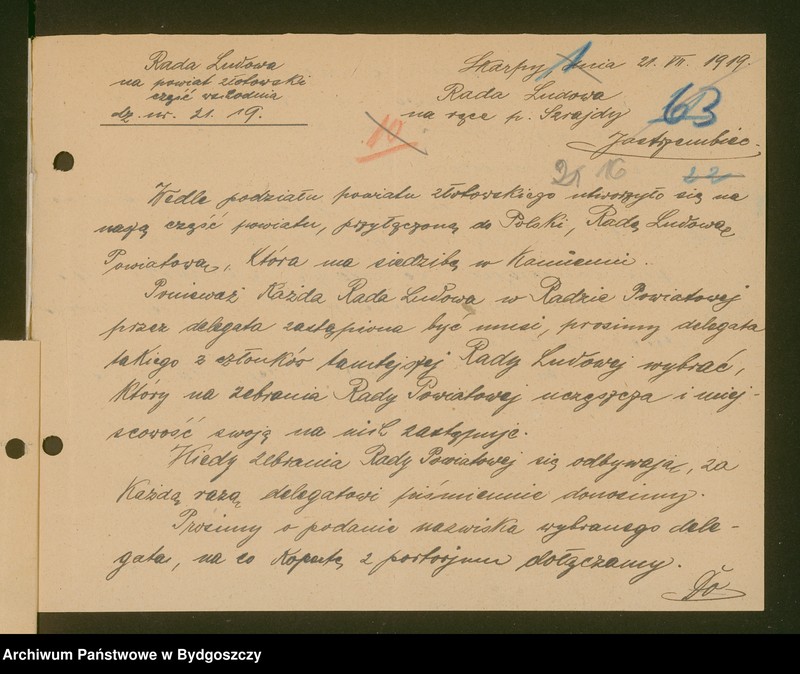 Rada Ludowa
na powiat złotowski
część wschodnia
dz. nr. 21. 19.
Skarpy, dnia 21. VII. 1919.
Rada Ludowa
na ręce p. Szrajdy
Jastrzembiec.
1
63
10
21 16
22
Wedle podziału powiatu złotowskiego utworzyło się na
naszą część powiatu, przyłączoną do Polski, Radę Ludową
Powiatową, która ma siedzibę w Kamieniu.
Ponieważ każda Rada Ludowa w Radzie Powiatowej
przez delegata zastąpiona być musi, prosimy delegata
takiego z członków tamtejszej Rady Ludowej wybrać,
który na zebrania Rady Powiatowej uczęszcza i miej-
scowość swoją na nich zastępuje.
Kiedy zebrania Rady Powiatowej się odbywają, za
każdą razą delegatowi piśmiennie donosimy.
Prosimy o podanie nazwiska wybranego dele-
gata, na co kopertę z portorjum dołączamy.
Archiwum Państwowe w Bydgoszczy